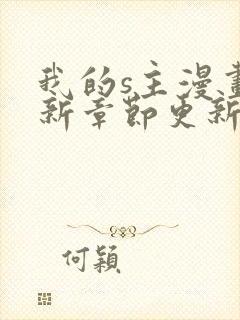 我的s主漫畫
新章節更新
何穎